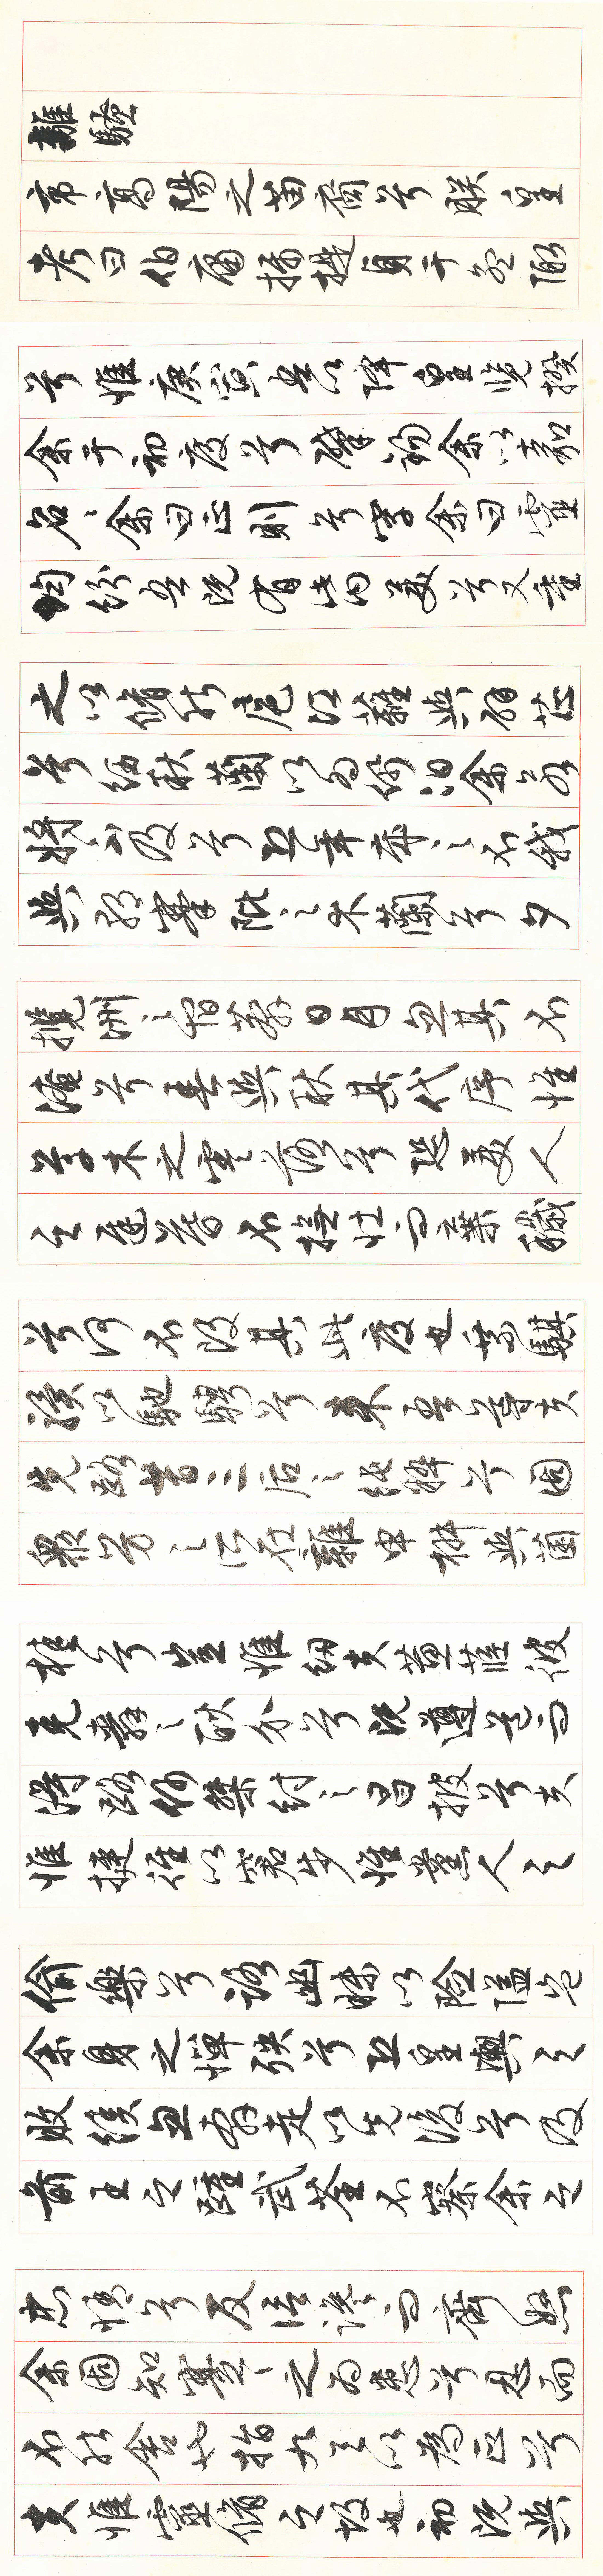 離騷
帝高陽之苗裔兮朕皇
考曰伯庸攝提貞于孟陬
兮惟庚寅吾以降皇覽揆
余于初度兮肇錫余以嘉
名、余曰正則兮字余曰靈
均紛吾既有此內美兮又重
之以脩能扈江蘺與辟芷
兮紉秋蘭以為佩汩余若
將不及兮恐年歲之不我
與朝搴阰之木蘭兮夕
攬洲之宿莽日月忽其不
淹兮春與秋其代序惟
草木之零落兮恐美人
之遲暮不撫壯而棄穢
兮何不改其此度也乘騏
驥以馳騁兮來吾導夫
先路昔三后之純粹兮固
衆芳之所在雜申椒與菌
桂兮豈惟紉夫蕙茝彼
堯舜之耿介兮既遵道而
得路何桀紂之昌披兮夫
惟捷徑以窘步惟黨人之
偷樂兮路幽昧以險隘豈
余身之憚殃兮恐皇輿之
敗績忽奔走以先後兮及
前王之踵武荃不察余之
忠情兮反信讒而齌怒
余固知謇謇之為患兮忍而
不能舍也指九天以為正兮
夫惟靈脩之故也初既與